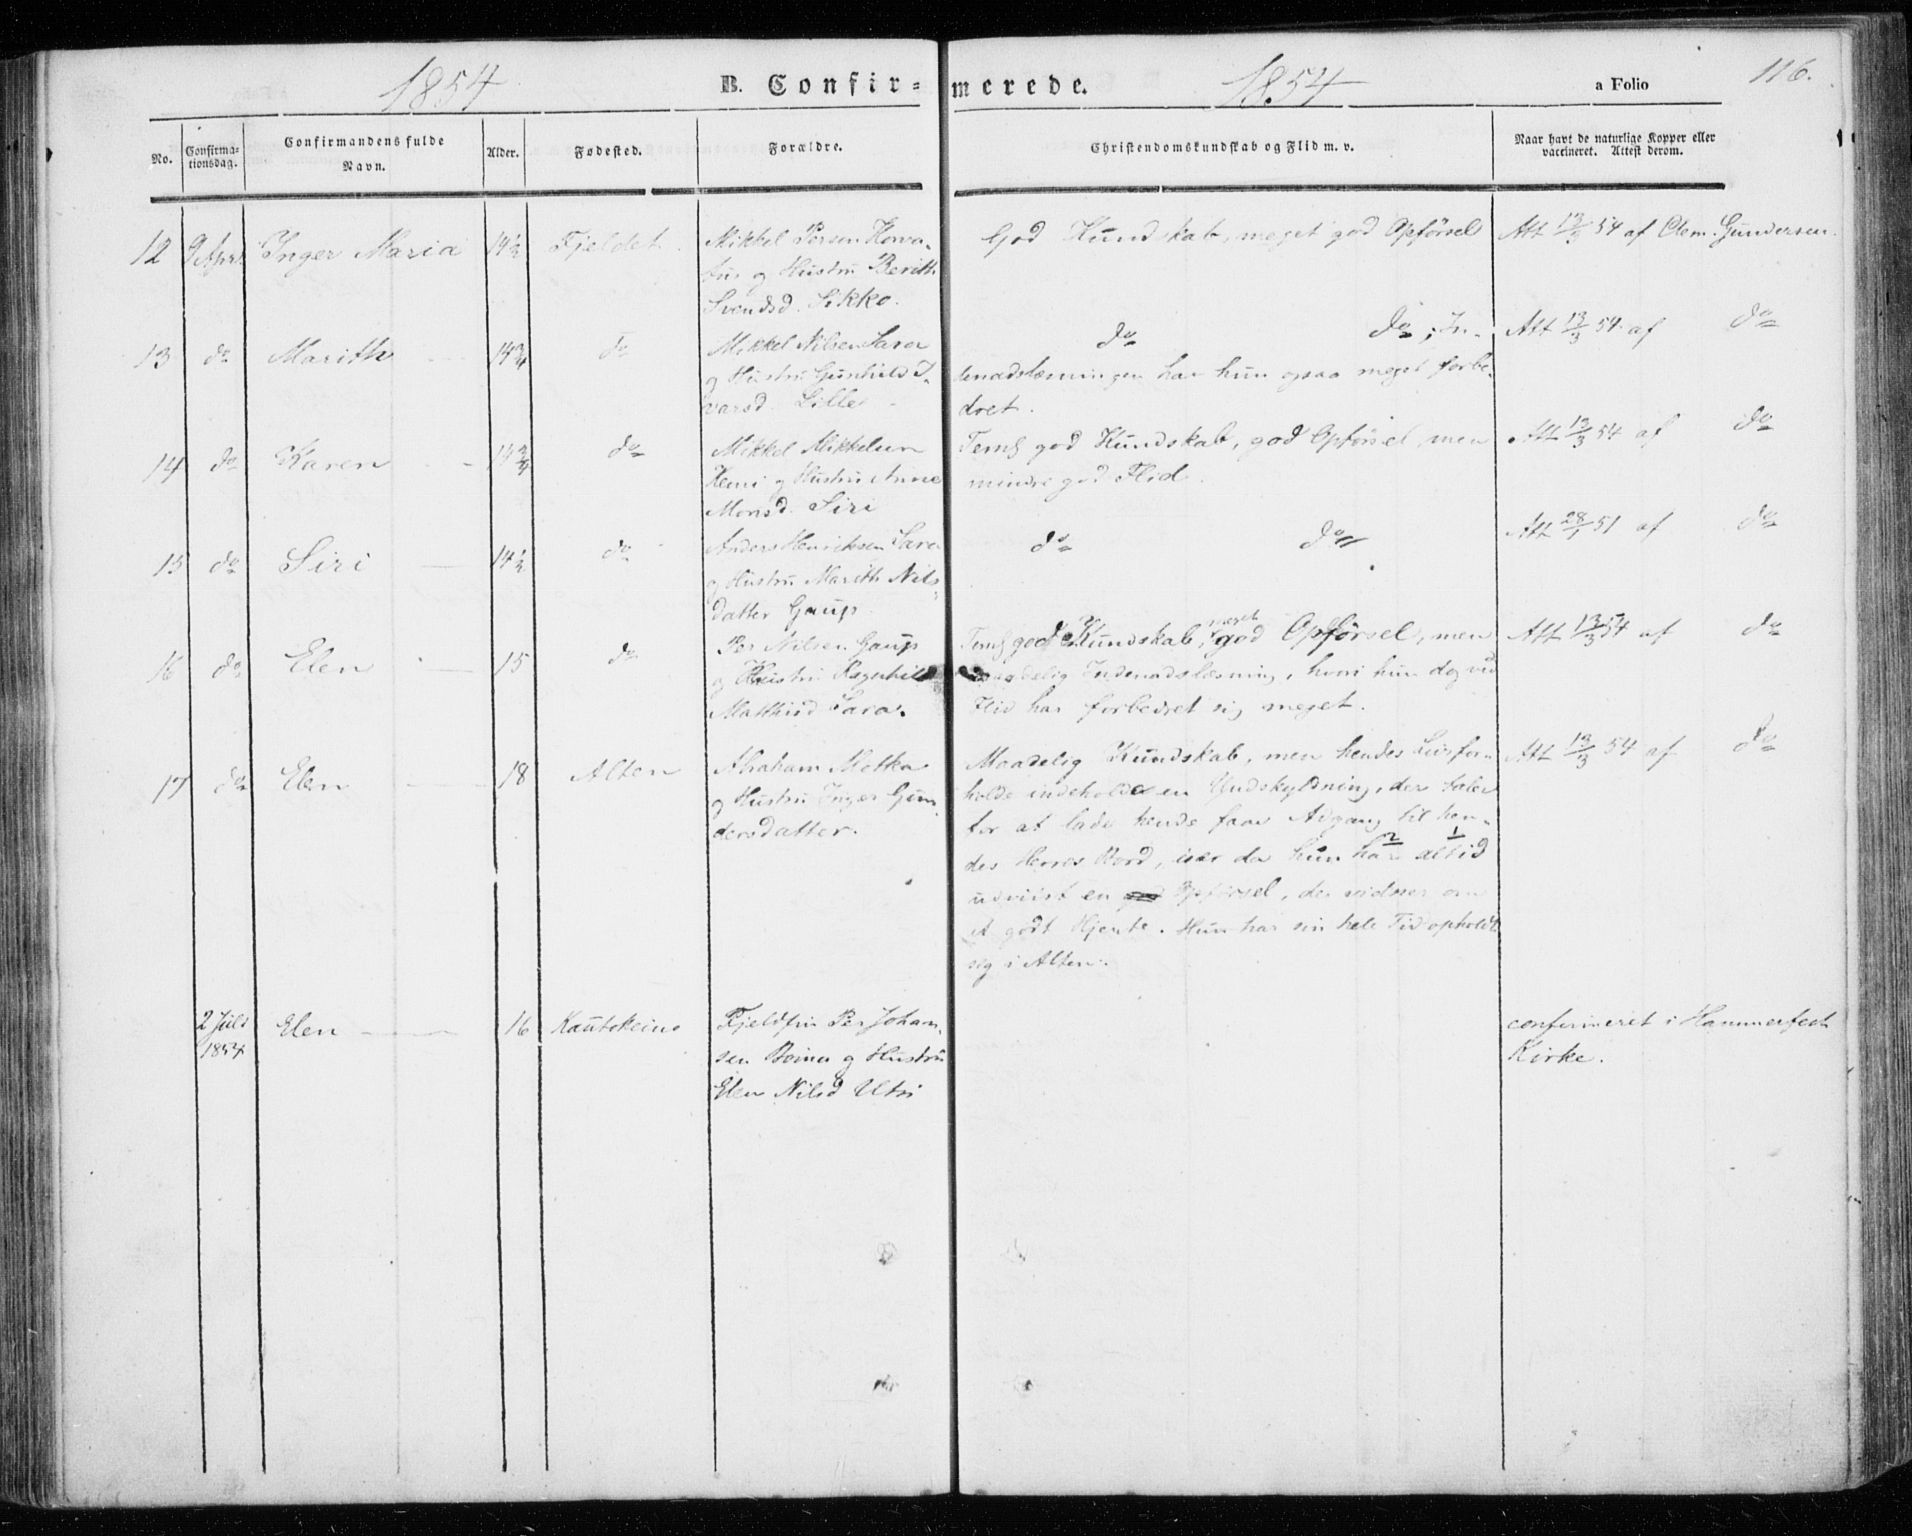 1854 B. Confir= merede. 1854 a Folio 116.
No. Confirma-tionsdag. Confirmandens fulde Navn. Alder. Fødested. Forældre. Christendomskundskab og Flid m. v. Naar havt de naturlige Kopper eller vaccineret. Attest derom.
12 9 April Inger Maria 14½ Fjeldet Mikkel Persen
og Hustru Berith
Svendsd. Sikko.
God Kundskab, meget god Opførsel
Att 13/3 54 af Clem. Gundersen.
13 do Marith 14¾ do Mikkel Nilsen Sara
og Hustru Gunhild I-
varsd. Lille
do do; In-
denadslæsningen har hun ogsaa meget forbe-
dret.
Att 13/3 54 af do
14 do Karen 14¾ do Mikkel Mikkelsen
og Hustru Anne
Monsd. Siri
Teml god Kundskab, god Opførsel, men
mindre god Flid.
Att 13/3 54 af do
15 do Siri 14½ do Anders Henriksen Sara
og Hustru Marith Nils-
datter Gaup.
do do
Att 28/1 51 af do
16 do Elen 15 do Per Nilsen Gaup
og Hustru Ragnhild
Matthisd Sara.
Teml god Kundskab, meget god Opførsel, men
maadelig Indenadslæsning, hvori hun dog ved
Flid har forbedret sig meget.
Att 13/3 54 af do
17 do Elen 18 Alten Abraham Motka
og Hustru Inger Gun-
dersdatter.
Maadelig Kundskab, men hendes Livsfor-
holde indeholde en Undskyldning, der taler
for at lade hende faae Adgang til hen-
des Herres Bord, især da hun har 2 altid 1
udviist en Opførsel, der vidner om
et godt Hjerte. Hun har sin hele Tid opholdt
sig i Alten.
Att 13/3 54 af do
2 Juli 1854 Elen 16 Kautokeino Fjeldfin Per Johan-
sen og Hustru
Elen Nilsd Utsi
confirmeret i Hammerfest
Kirke.